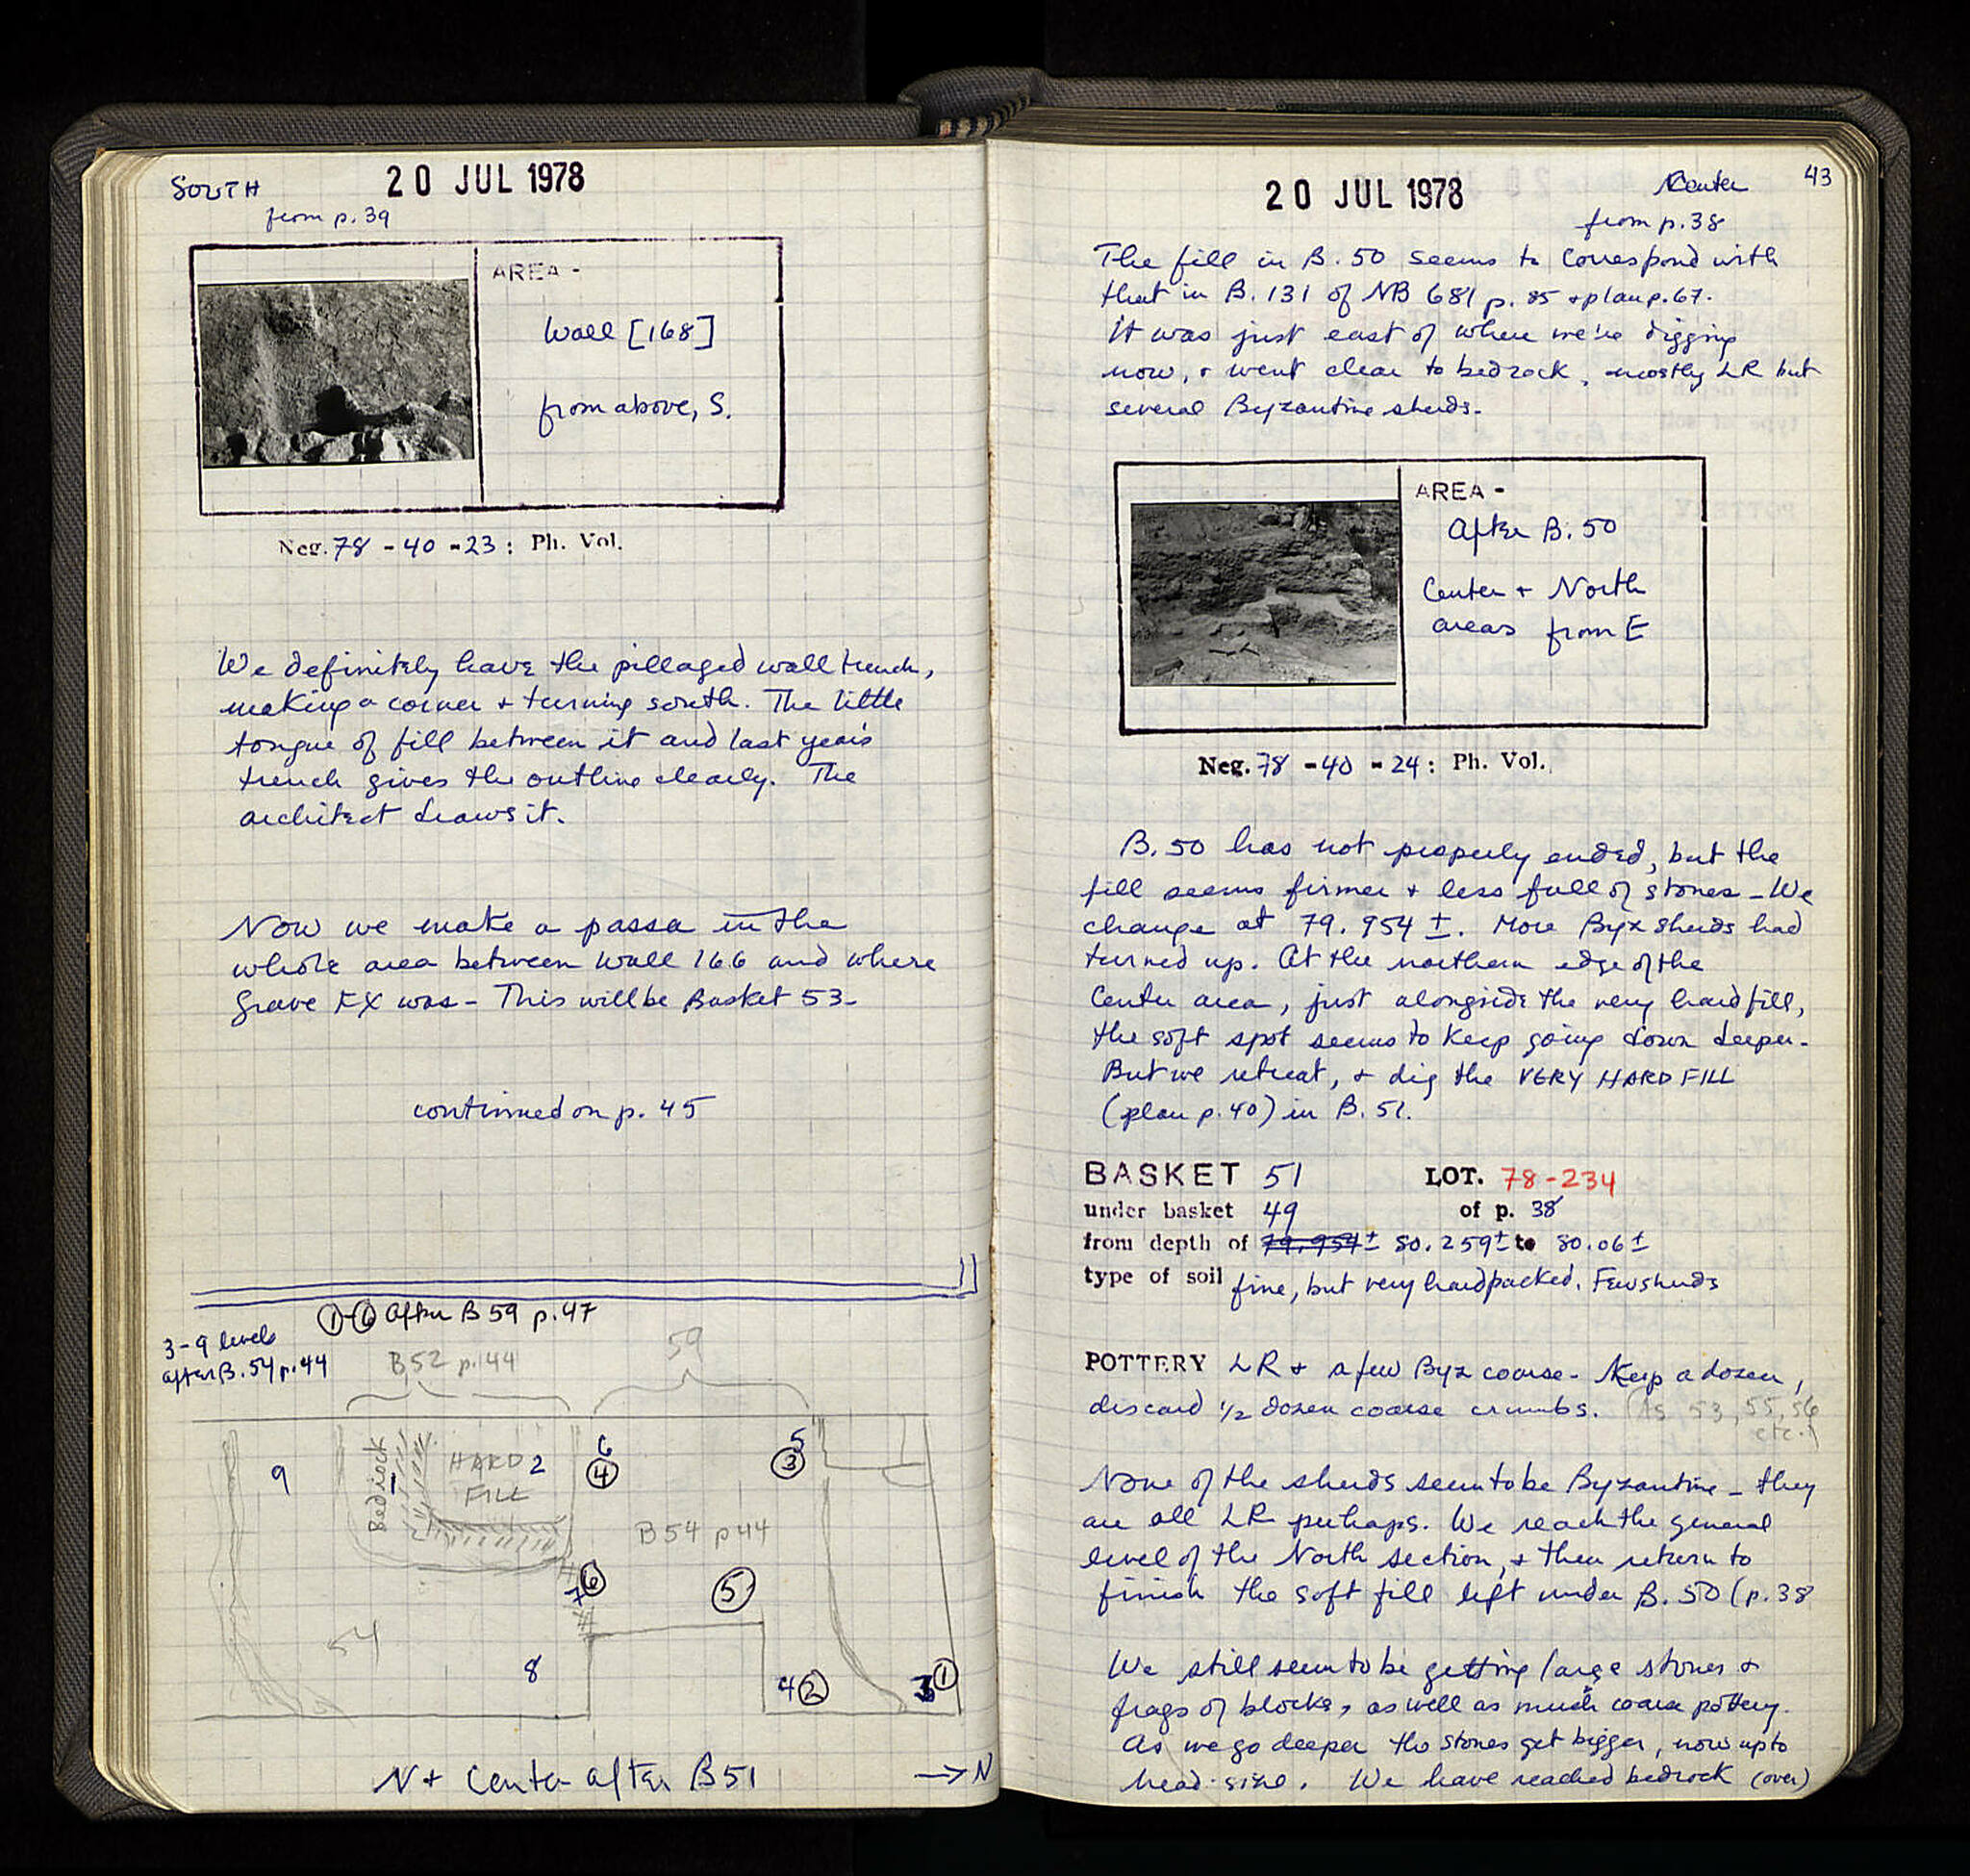 SOUTH 20 JUL 1978
from p. 39
AREA -
Wall [168]
from above, S.
Neg. 78 - 40 - 23 : Ph. Vol.
We definitely have the pillaged wall trench,
making a corner + turning south. The little
tongue of fill between it and last year's
trench gives the outline clearly. The
architect draws it.
Now we make a passa in the
whole area between Wall 166 and where
Grave FX was - This will be Basket 53-
continued on p. 45
①-⑥ After B 59 p. 47
3-9 levels
after B. 54 p. 44
B52 p. 44
59
9
Bedrock
1
HARD 2
FILL
6
④
5
③
B54 p 44
7⑥
⑤
54
8
4②
3①
N + Center after B51
→ N
20 JUL 1978 Center 43
from p. 38
The fill in B. 50 seems to correspond with
that in B. 131 of NB 681 p. 85 + plan p. 67.
It was just east of where we're digging
now, + went clear to bedrock, mostly LR but
several Byzantine sherds.
AREA -
After B. 50
Center + North
areas from E
Neg. 78 - 40 - 24 : Ph. Vol.
B. 50 has not properly ended, but the
fill seems firmer + less full of stones - We
change at 79.954 ±. More Byz sherds had
turned up. At the northern edge of the
Center area, just alongside the very hard fill,
the soft spot seems to keep going down deeper.
But we retreat, + dig the VERY HARD FILL
(plan p. 40) in B. 51.
BASKET 51 LOT. 78-234
under basket 49 of p. 38
from depth of 79.954± 80.259± to 80.06±
type of soil fine, but very hardpacked. Few sherds
POTTERY LR + a few Byz coarse - Keep a dozen,
discard 1/2 dozen coarse crumbs. (As 53, 55, 56
etc.)
None of the sherds seem to be Byzantine - they
are all LR perhaps. We reach the general
level of the North section, + then return to
finish the soft fill left under B. 50 (p. 38
We still seem to be getting large stones +
frags of blocks, as well as much coarse pottery.
As we go deeper the stones get bigger, now up to
head-size. We have reached bedrock (over)